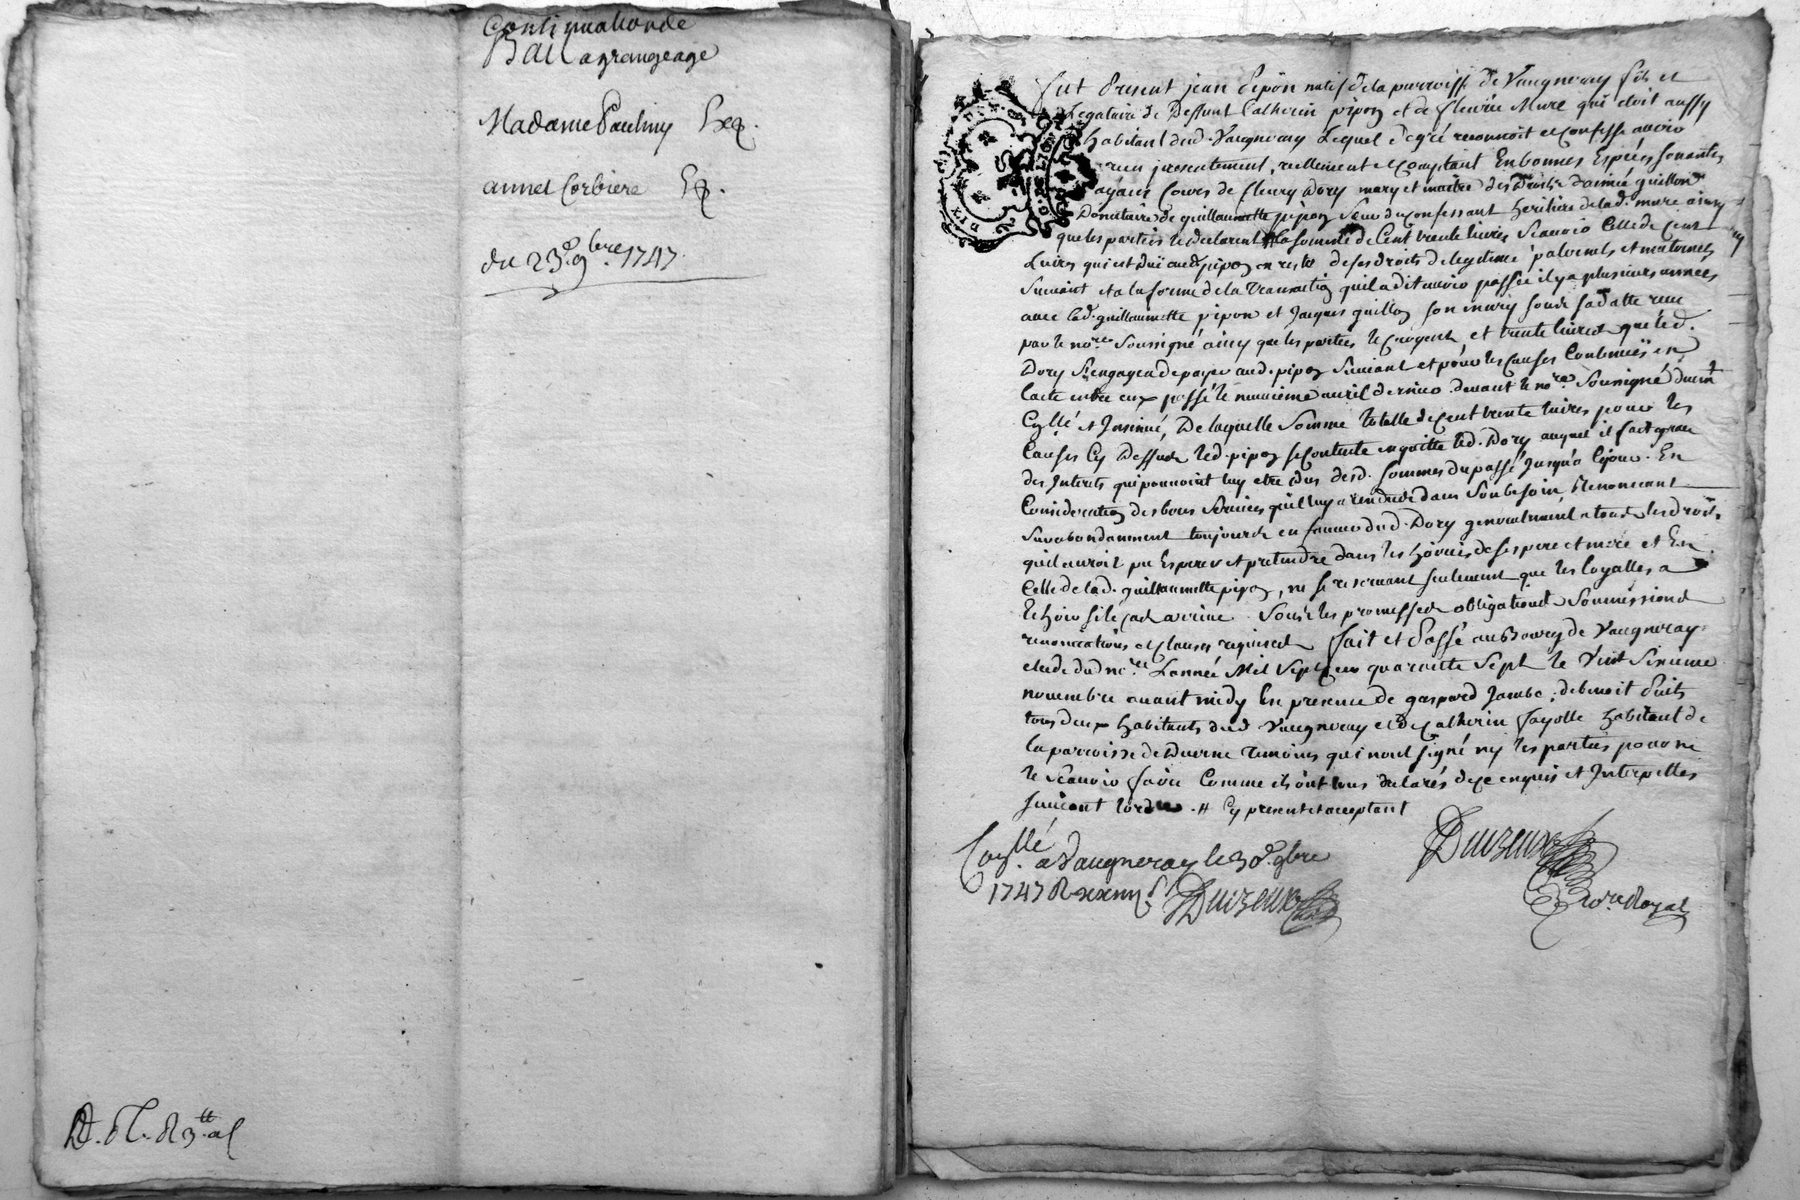 Continuation de
Bail a grangeage
Madame Paulmy
annet Corbiere
du 23e 9bre 1747
fut Present jean Pipon natif de la parroisse de Vaugneray fils et
Legataire de Deffunt Catherin pipon et de fleurie Mure qui etoit aussy
habitant dud. Vaugneray Lequel de gré reconnoit et Confesse avoir
receu presentement, reellement et Comptant En bonnes Especes sonantes
ayant Cours de fleury Dory mary et maitre des Droits d'aimée guillon
Donnataire de guillaumette pipon seur du Confessant heritiere de lad. mure ainsy
que les parties le declarent # la somme de Cent trente livres Scavoir Celle de Cent
Livres qui est duë aud. pipon en reste de ses droits de legitime paternels et maternels
Suivant et a la forme de la transaction quil a dit avoir passée il y a plusieurs années
avec lad. guillaumette pipon et jacques guillon son mary sous sa datte reçue
par le nore Soussigné ainsy que les parties le croyent, et trente livres que led.
Dory S'engagea de payer aud. pipon Suivant et pour les Causes Contenuës en
l'acte entre eux passé le neuvieme avril dernier devant le nore Soussigné duem.t
Collé et Insinué, De laquelle Somme totalle de Cent trente livres pour les
Causes Cy Dessus led. pipon se Contente en quitte led. Dory auquel il fait grace
des Interets qui pourroint luy etre dus desd. Sommes du passé jusqu'a Cejour. En
Consideration des bons Services quil luy a rendus dans Son besoin, Renonceant
Surabondamment toujours en faveur dud. Dory generalement a tous les droits
quil auroit pu Esperer et pretendre dans les hoiries de ses pere et mere et En
Celle de lad. guillaumette pipon, ne se reservant seulement que les loyalles a
Echoir si le cas arrive. Sous les promesses obligations Soumissions
renonciations et Clauses requises fait et Passé au Bourg de Vaugneray
etude dud nore L'année Mil Sept Cens quarante Sept le Vint Sixieme
novembre avant midy En presence de gaspard jambe, de benoit Puits
tous deux habitants dud Vaugneray et de Catherin fayolle habitant de
la parroisse de Duerne temoins qui n'ont signé ny les parties pour ne
le Scavoir faire Comme ils ont tous declarés de ce enquis et Interpellés
suivant l'ordce. # Cy present et acceptant
Collé a Vaugneray le 30e 9bre
1747
Nore Royal